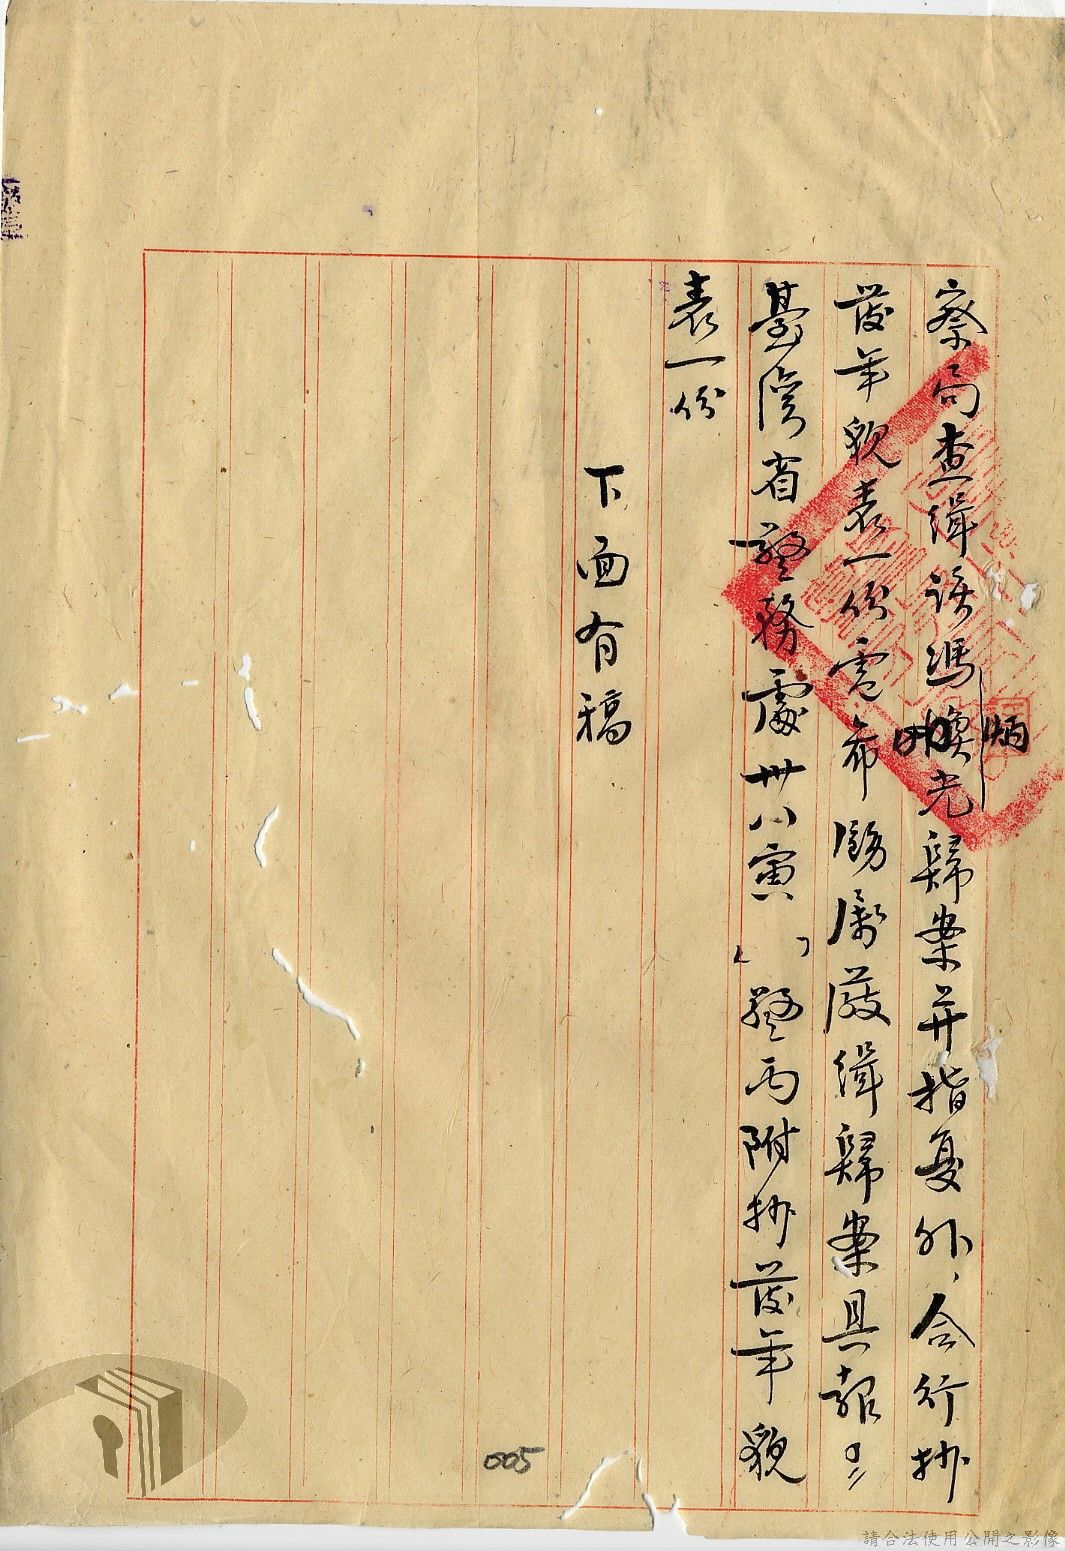 察局查緝該馮煥光歸案并指复外,合行抄
炳
發年貌表一份電希飭屬嚴緝歸案具報
臺灣省警務處卅八寅( )警丙附抄發年貌
表一份
下面有稿
005
請合法使用公開之影像